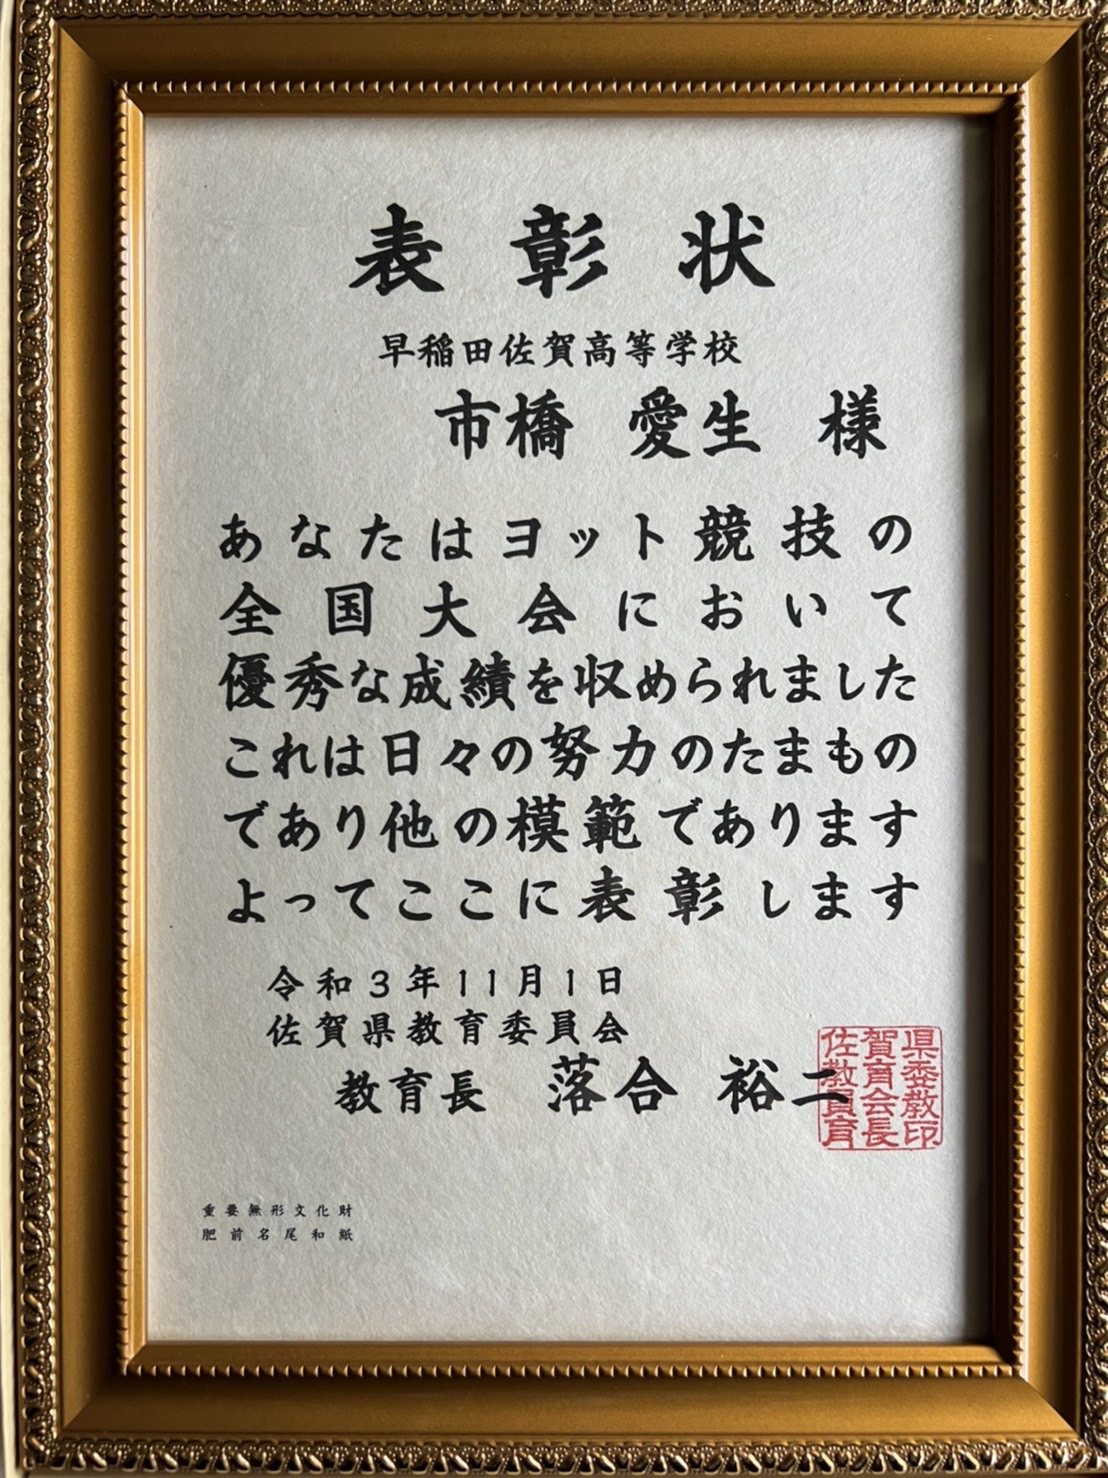 表彰状
早稲田佐賀高等学校
市橋 愛生 様
あなたはヨット競技の
全国大会において
優秀な成績を収められました
これは日々の努力のたまもの
であり他の模範であります
よってここに表彰します
令和3年11月1日
佐賀県教育委員会
教育長 落合 裕二
県委教印
賀育会長
佐教員育
重要無形文化財
肥前名尾和紙